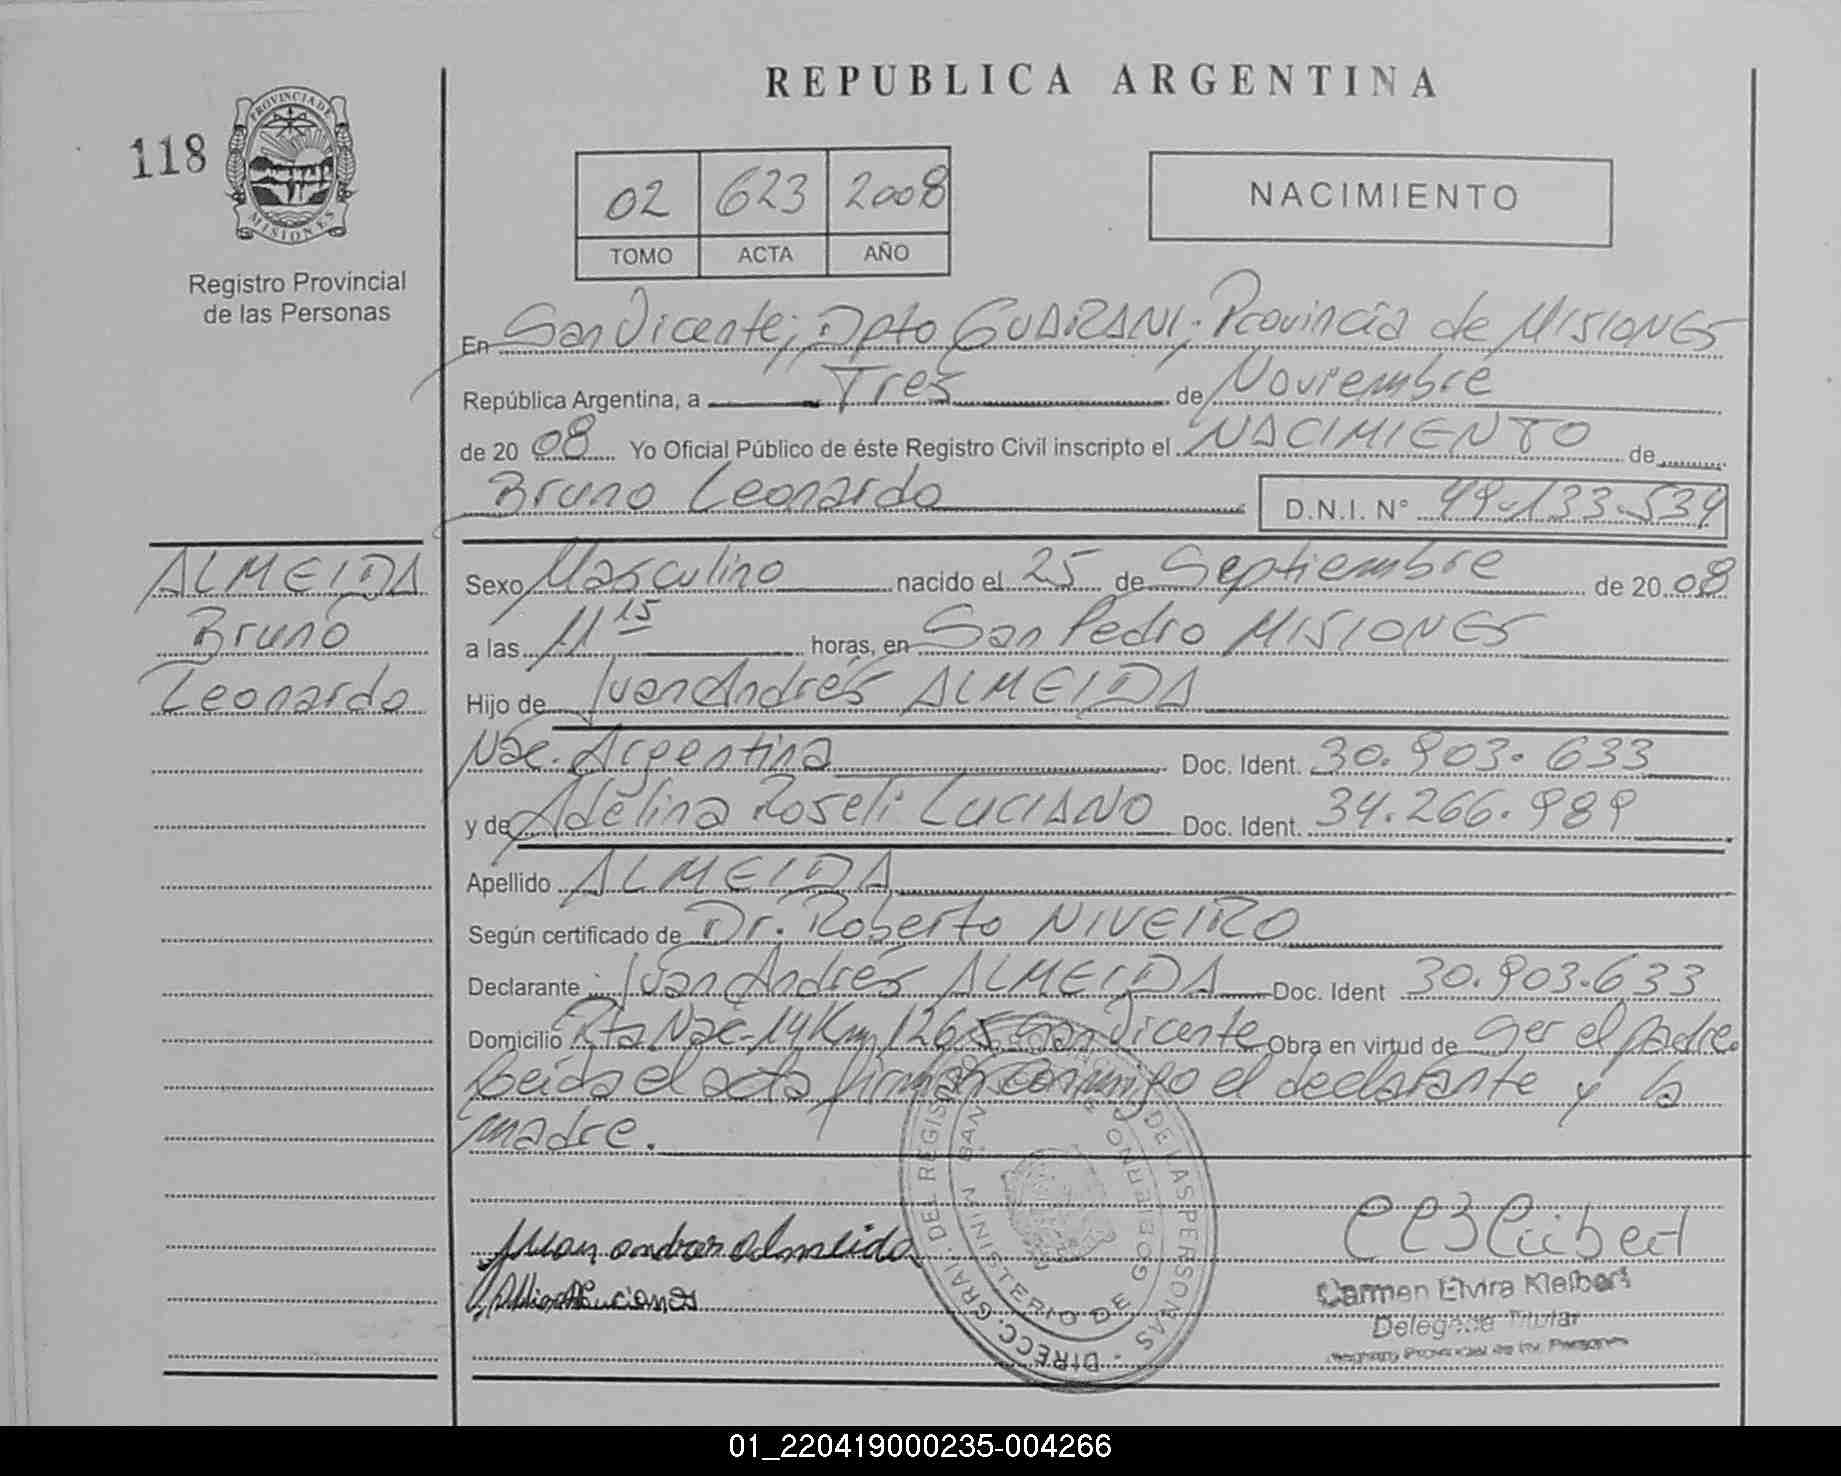 REPUBLICA ARGENTINA
118
PROVINCIA DE
MISIONES
Registro Provincial
de las Personas
02 623 2008
TOMO ACTA AÑO
NACIMIENTO
En San Vicente, Dpto GUARANI, Provincia de MISIONES
República Argentina, a Tres de Noviembre
de 2008 Yo Oficial Público de éste Registro Civil inscripto el NACIMIENTO de
Bruno Leonardo D.N.I. N° 49.133.534
ALMEIDA
Bruno
Leonardo
Sexo Masculino nacido el 25 de Septiembre de 2008
a las 11 15 horas, en San Pedro MISIONES
Hijo de Juan Andrés ALMEIDA
Nac. Argentina Doc. Ident. 30.903.633
y de Adelina Roseli LUCIANO Doc. Ident. 34.266.989
Apellido ALMEIDA
Según certificado de Dr. Roberto NIVEIRO
Declarante Juan Andrés ALMEIDA Doc. Ident 30.903.633
Domicilio Rta Nac. 14 Km 1265 San Vicente Obra en virtud de ser el padre.
Leida el acta firman conmigo el declarante y la
madre.
DIRECC. GRAL. DEL REGISTRO DE LAS PERSONAS
MINISTERIO DE GOBIERNO
juan andres almeida
Carmen Elvira Kleibert
Delegada Titular
Registro Provincial de las Personas
01_220419000235-004266